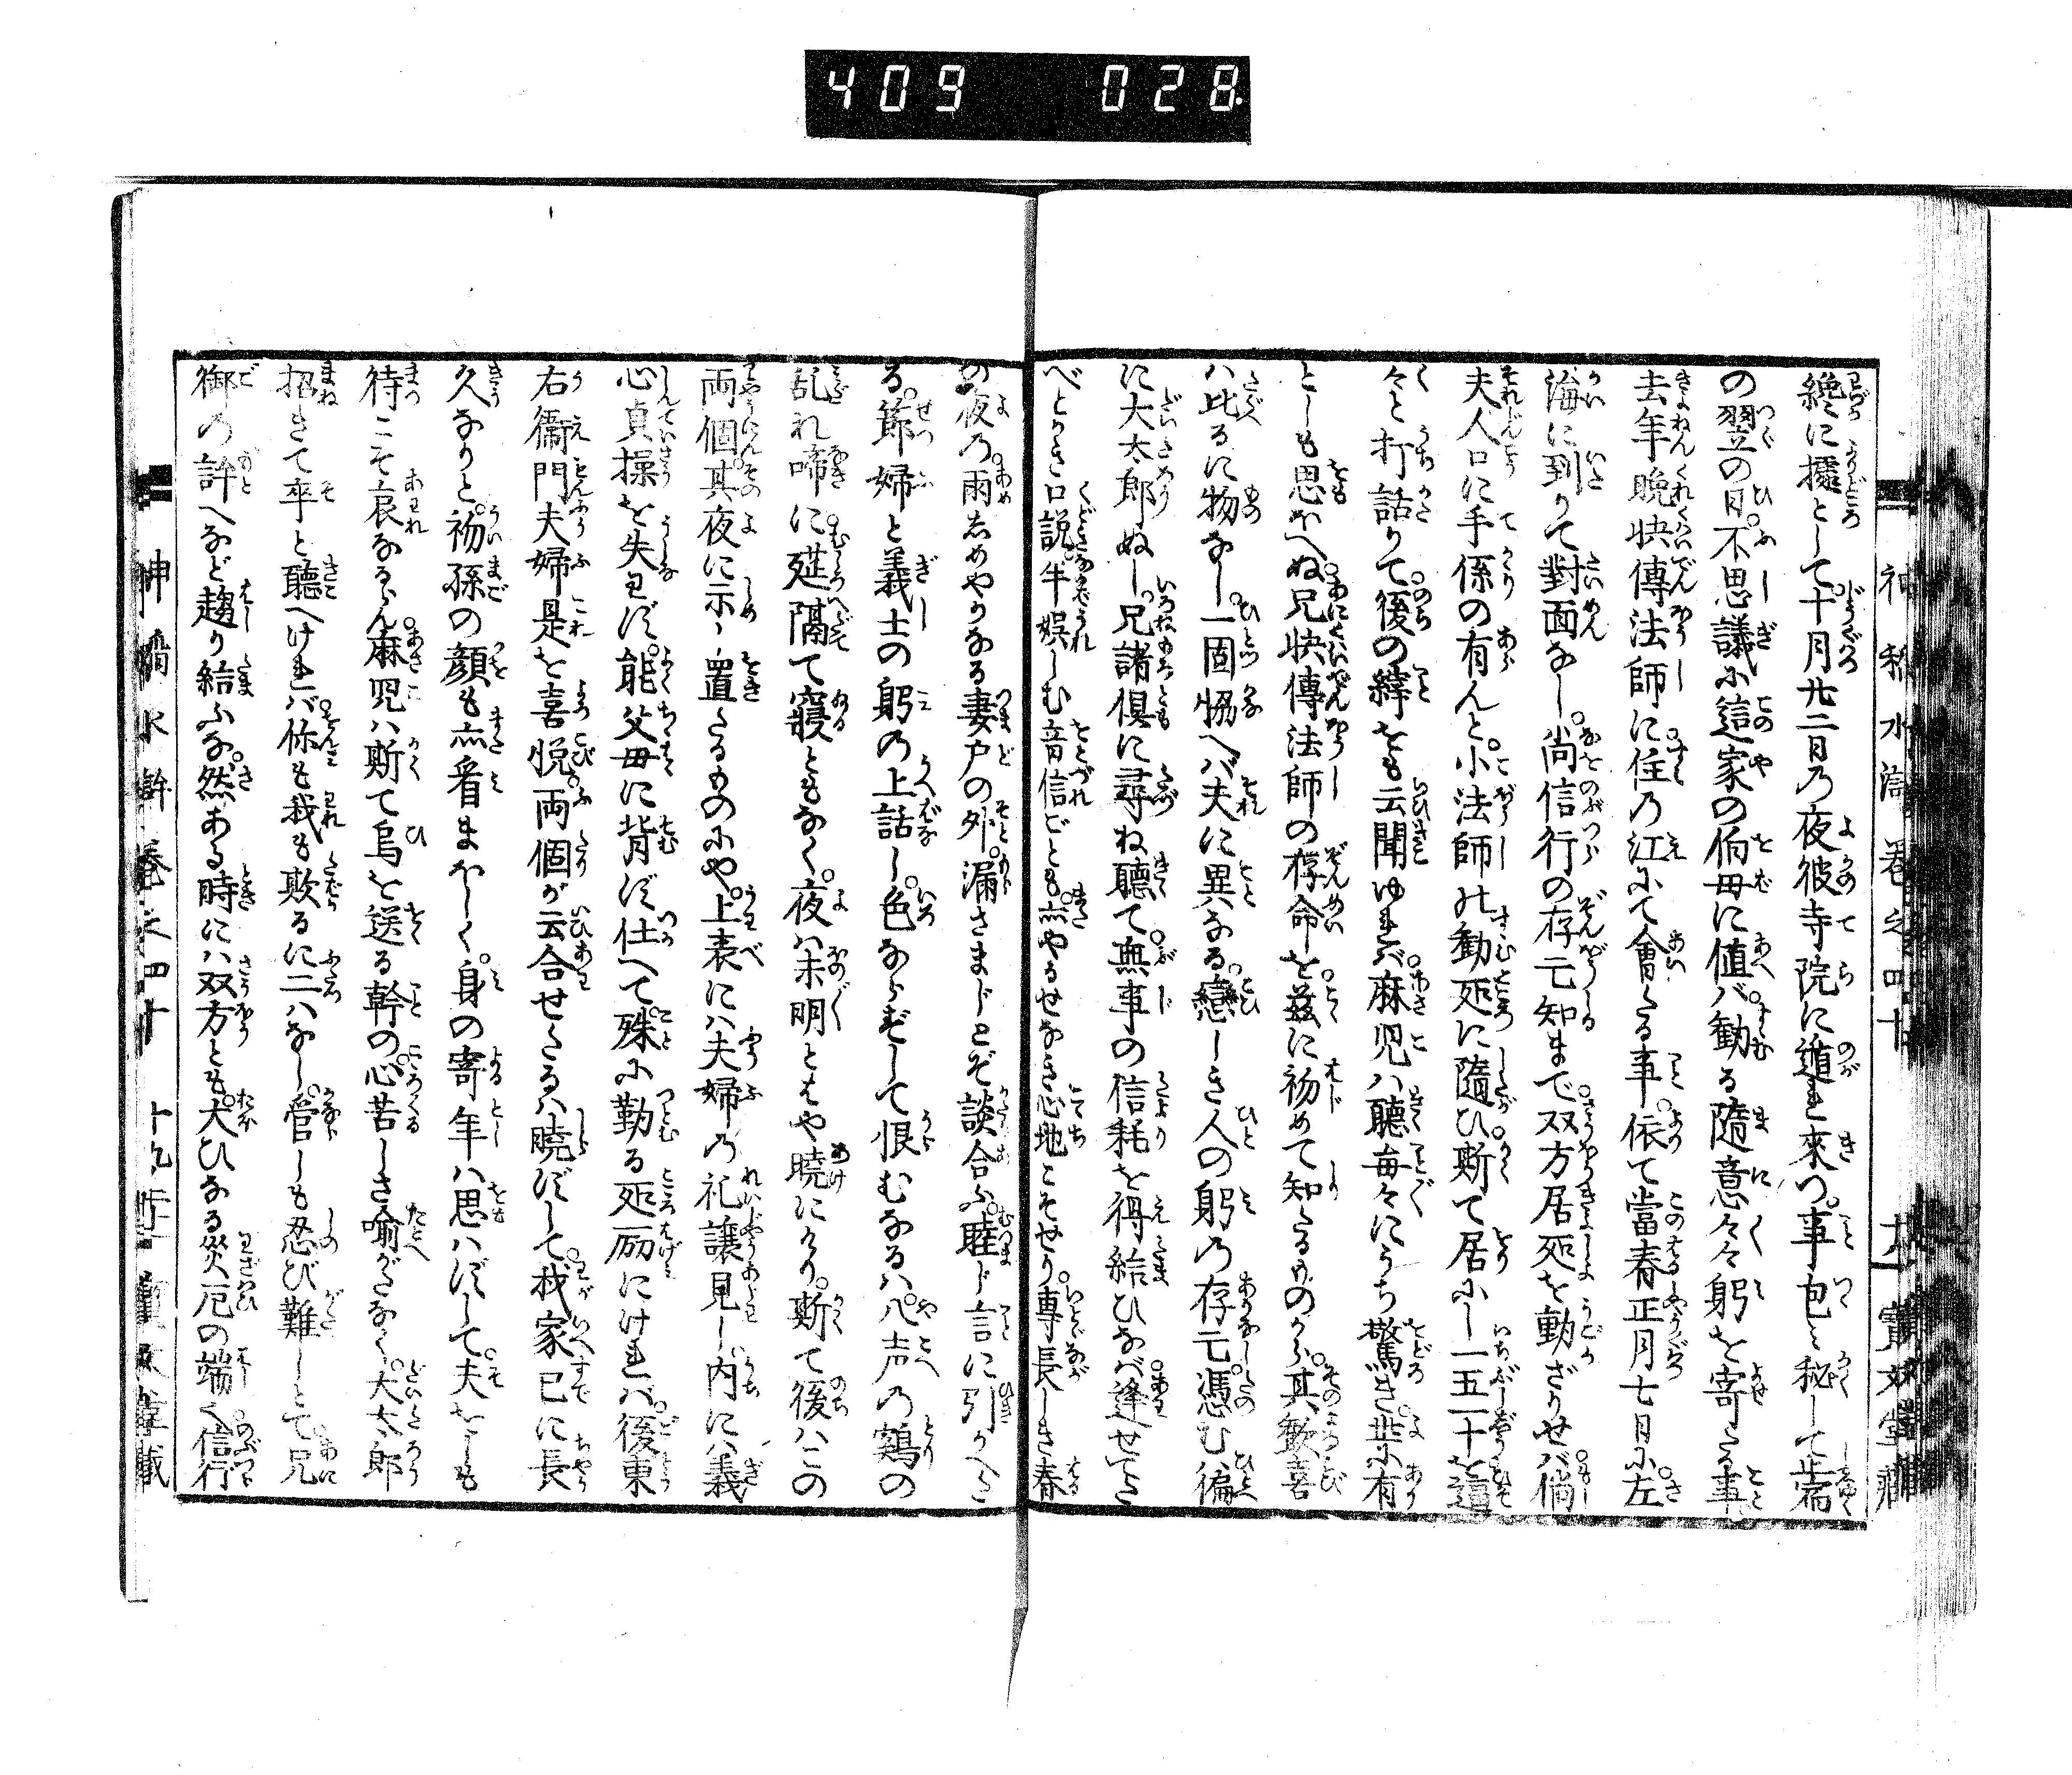 409 028
絶に據として十月廿二日乃夜彼寺院に遁れ來つ。事包み秘して止宿
の翌の日。不思議に這家の伯母に値バ勧る隨意々々躬を寄たる事。
去年晩快傳法師に住乃江にて會たる事。依て當春正月七日に左
海に到りて對面なし。尚信行の存亡知まで双方居処を動ざりせバ倘
夫人口に手係の有んと。小法師が勧処に隨ひ斯て居に一五一十を這
々と打話りて。後の緯をも云聞ゆれバ。麻児ハ聴毎々にうち驚き世に有
としも思ほへぬ兄快傳法師の存命を。茲に初めて知たるものから。其歓喜
ハ比るに物なし。一固惱へバ夫に異なる。戀しき人の躬乃存亡。憑む徧
に大太郎ぬし。兄諸倶に尋ね聴て。無事の信耗を得給ひなバ。逢せてた
べとかき口説半娯しむ音信ども。亦やるせなき心地こそせり。専長しき春
の夜乃雨しめやかなる妻戸の外。漏さまじとぞ談合ふ。睦じ言に引かへた
る。節婦と義士の躬乃上話し。色ならずして恨むなるハ。八声乃鶏の
乱れ啼に筵隔て寝ともなく。夜ハ未明とはや暁にけり。斯て後ハこの
両個。其夜に示し置たるものにや。上表にハ夫婦乃礼譲見し内にハ義
心貞操を失ハず。能父母に背ず仕へて。殊に勤る処励にけれバ。後東
右衞門夫婦是を喜悦。両個が云合せたるハ暁ずして。我家已に長
久なりと。初孫の顔も亦看まほしく。身の寄年ハ思ハずして。夫をしも
待こそ哀ならん。麻児ハ斯て烏を送る幹の。心苦しさ喩がたなく。大太郎
招きて卒と聴へけれバ。你も我も欺るに二ハなし。管しも忍び難しとて兄
御乃許へなど趨り給ふな。然ある時にハ双方とも。大ひなる災厄の端く。信行